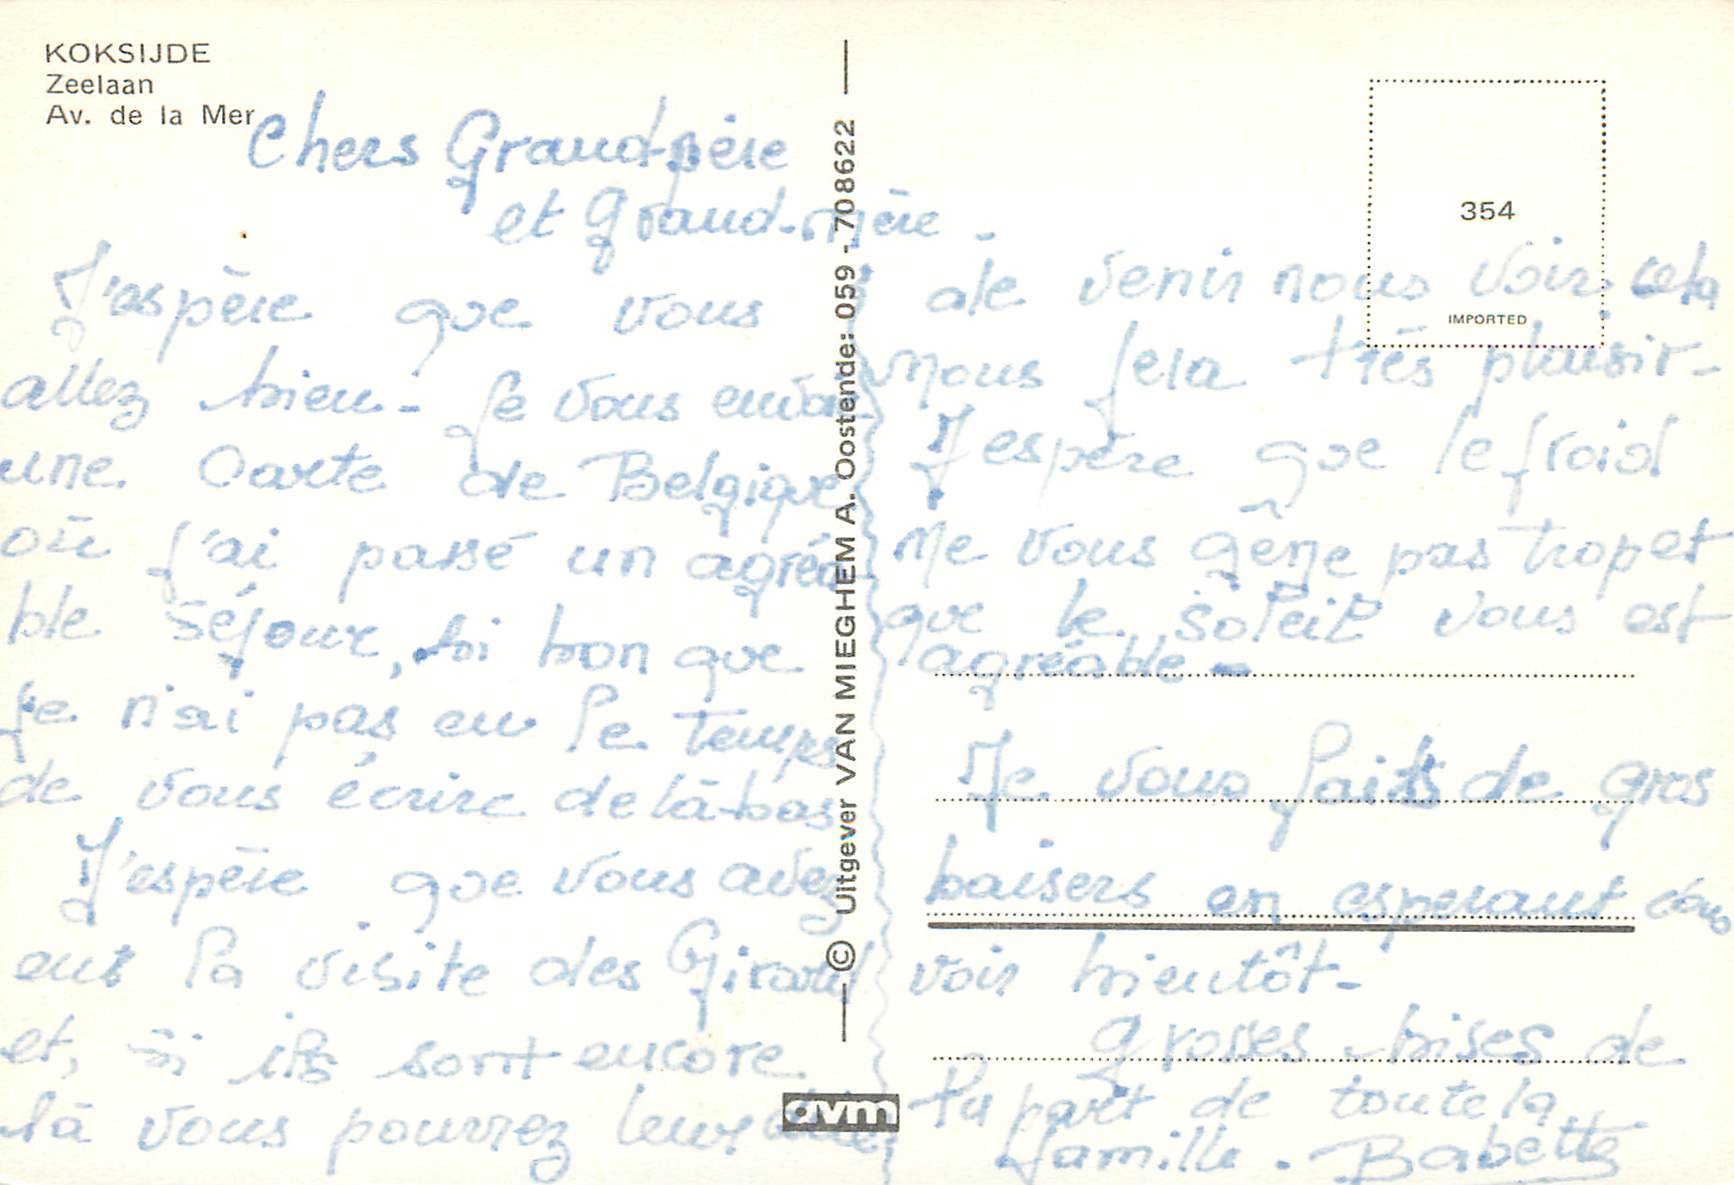 KOKSIJDE
Zeelaan
Av. de la Mer
Chers Grand-père
et Grand-mère.
J'espère que vous
allez bien. Je vous envoi
une Carte de Belgique
où j'ai passé un agréa
ble séjour, si bon que
je n'ai pas eu le temps
de vous écrire de là-bas
J'espère que vous avez
eut la visite des Girard
et, si ils sont encore
là vous pourrez leur dire
© Uitgever VAN MIEGHEM A. Oostende: 059 - 708622
avm
354
IMPORTED
de venir nous voir cela
nous fera très plaisir-
J'espère que le froid
ne vous gêne pas trop et
que le soleil vous est
agréable-
Je vous faits de gros
baisers en esperant vous
voir bientôt-
grosses bises de
la part de toute la
famille. Babette